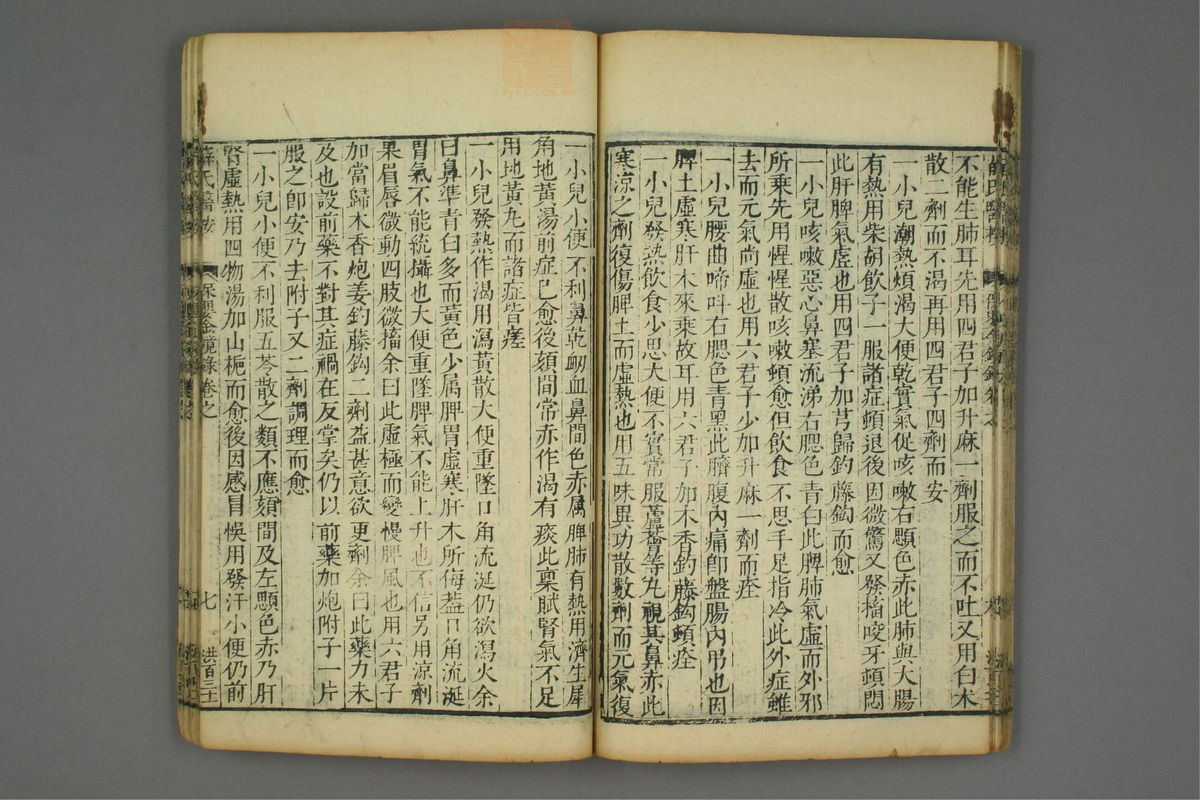 不能生肺耳先用四君子加升麻一劑服之而不吐又用白朮
散二劑而不渴再用四君子四劑而安
一小兒潮熱煩渴大便乾實氣促咳嗽右顋色赤此肺與大腸
有熱用柴胡飲子一服諸症頓退後因微驚又發搐咬牙頓悶
此肝脾氣虛也用四君子加芎歸釣藤鈎而愈
一小兒咳嗽惡心鼻塞流涕右腮色青白此脾肺氣虛而外邪
所乘先用惺惺散咳嗽頓愈但飲食不思手足指冷此外症雖
去而元氣尚虛也用六君子少加升麻一劑而痊
一小兒腰曲啼叫右腮色青黑此臍腹內痛卽盤腸內吊也因
脾土虛寒肝木來乘故耳用六君子加木香釣藤鈎頓痊
一小兒發熱飲食少思大便不實常服蘆薈等丸視其鼻赤此
寒涼之劑復傷脾土而虛熱也用五味異功散數劑而元氣復
一小兒小便不利鼻乾衂血鼻間色赤屬脾肺有熱用濟生犀
角地黃湯前症已愈後頦間常赤作渴有痰此稟賦腎氣不足
用地黃丸而諸症皆痊
一小兒發熱作渴用瀉黃散大便重墜口角流涎仍欲瀉火余
曰鼻準青白多而黃色少屬脾胃虛寒肝木所侮蓋口角流涎
胃氣不能統攝也大便重墜脾氣不能上升也不信另用涼劑
果眉唇微動四肢微搐余曰此虛極而變慢脾風也用六君子
加當歸木香炮姜釣藤鈎二劑益甚意欲更劑余曰此藥力未
及也設前藥不對其症禍在反掌矣仍以前藥加炮附子一片
服之卽安乃去附子又二劑調理而愈
一小兒小便不利服五苓散之類不應頦間及左顋色赤乃肝
腎虛熱用四物湯加山梔而愈後因感冒悞用發汗小便仍前
薛氏醫按 保嬰金鏡錄卷之 七 洪百三十